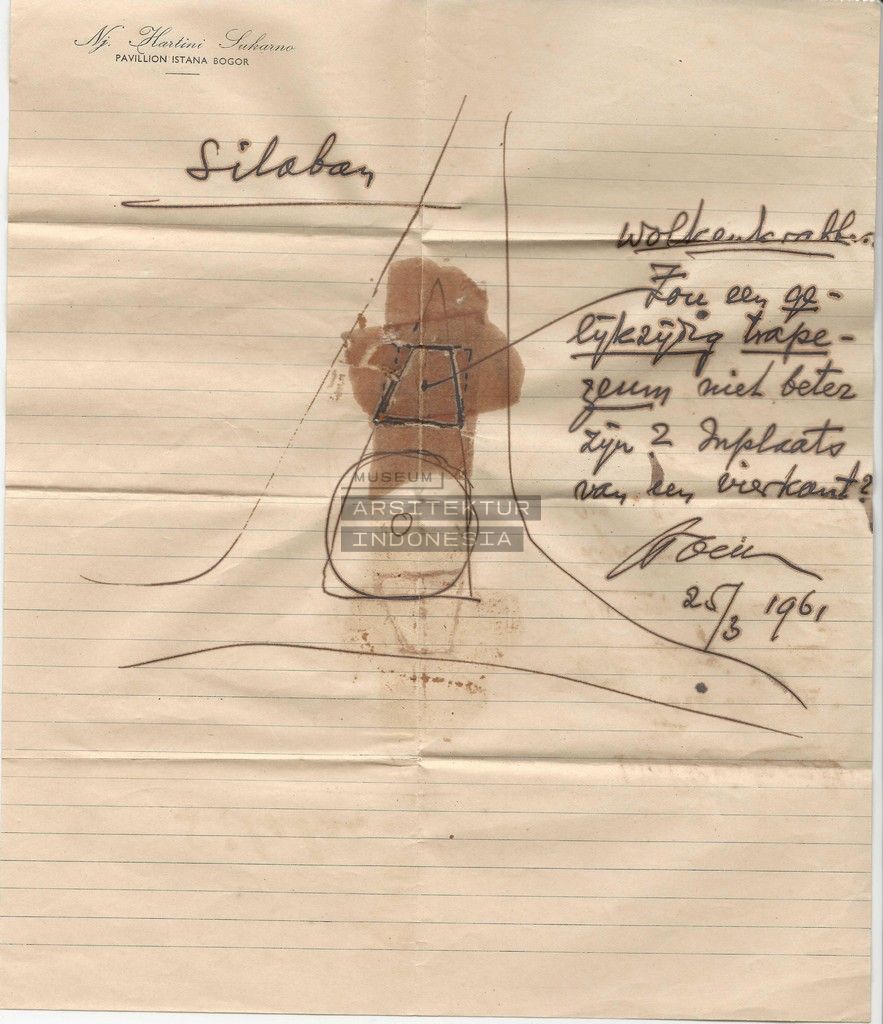 Nj. Hartini Sukarno
PAVILLION ISTANA BOGOR
Silaban
Wolkenkrabber
Zou een ge-
lijkzijdig trape-
zeum niet beter
zijn? Inplaats
van een vierkant?
25/3 1961
MUSEUM
ARSITEKTUR
INDONESIA